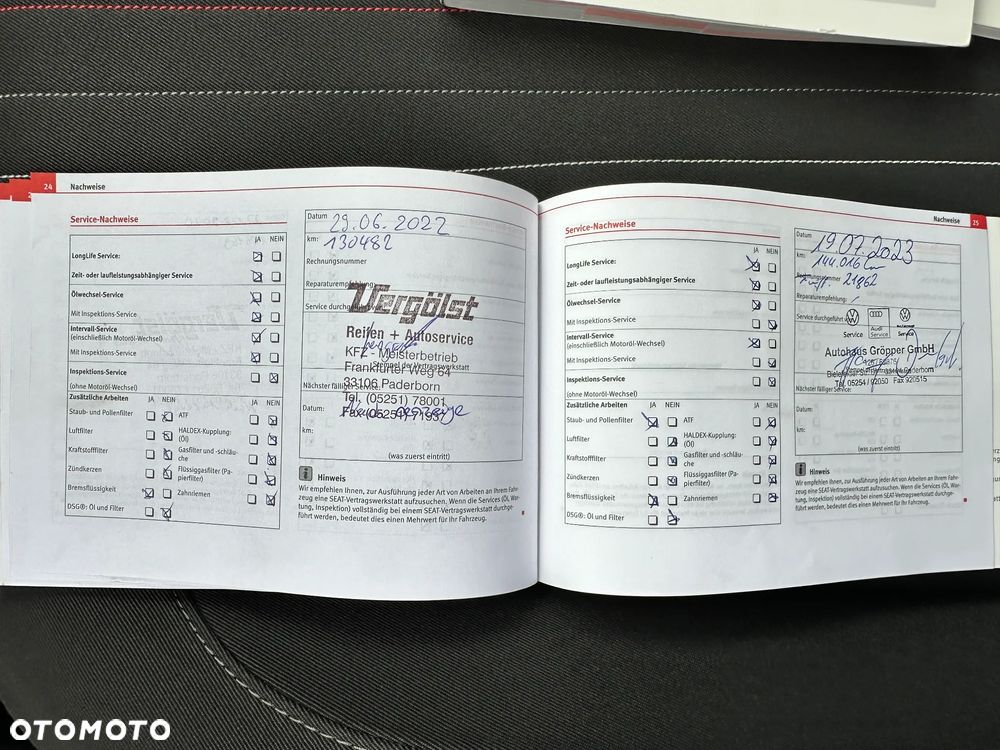 24 Nachweise
Service-Nachweise
JA NEIN
LongLife Service:
Zeit- oder laufleistungsabhängiger Service
Ölwechsel-Service
Mit Inspektions-Service
Intervall-Service
(einschließlich Motoröl-Wechsel)
Mit Inspektions-Service
Inspektions-Service
(ohne Motoröl-Wechsel)
Zusätzliche Arbeiten JA NEIN JA NEIN
Staub- und Pollenfilter ATF
Luftfilter HALDEX-Kupplung:
(Öl)
Kraftstofffilter Gasfilter und -schläu-
che
Zündkerzen Flüssiggasfilter (Pa-
pierfilter)
Bremsflüssigkeit Zahnriemen
DSG®: Öl und Filter
Datum 29.06.2022
km: 130482
Rechnungsnummer
Reparaturempfehlung:
Service durchgeführt
Vergölst
Reifen + Autoservice
KFZ - Meisterbetrieb
Stempel der Vertragswerkstatt
Frankfurter Weg 64
33106 Paderborn
Nächster fälliger Service:
Tel. (05251) 78001
Datum:
Fax (05251) 71937
km:
(was zuerst eintritt)
Hinweis
Wir empfehlen Ihnen, zur Ausführung jeder Art von Arbeiten an Ihrem Fahr-
zeug eine SEAT-Vertragswerkstatt aufzusuchen. Wenn die Services (Öl, War-
tung, Inspektion) vollständig bei einem SEAT-Vertragswerkstatt durchge-
führt werden, bedeutet dies einen Mehrwert für Ihr Fahrzeug.
Nachweise 25
Service-Nachweise
JA NEIN
LongLife Service:
Zeit- oder laufleistungsabhängiger Service
Ölwechsel-Service
Mit Inspektions-Service
Intervall-Service
(einschließlich Motoröl-Wechsel)
Mit Inspektions-Service
Inspektions-Service
(ohne Motoröl-Wechsel)
Zusätzliche Arbeiten JA NEIN JA NEIN
Staub- und Pollenfilter ATF
Luftfilter HALDEX-Kupplung:
(Öl)
Kraftstofffilter Gasfilter und -schläu-
che
Zündkerzen Flüssiggasfilter (Pa-
pierfilter)
Bremsflüssigkeit Zahnriemen
DSG®: Öl und Filter
Datum 19.07.2023
km: 144.016 km
Rechnungsnummer 21862
Reparaturempfehlung:
Service durchgeführt
Service Audi Service
Autohaus Gröpper GmbH
Paderborn
Tel. 05254 / 92050 Fax 920515
Nächster fälliger Service:
Datum:
km:
(was zuerst eintritt)
Hinweis
Wir empfehlen Ihnen, zur Ausführung jeder Art von Arbeiten an Ihrem Fahr-
zeug eine SEAT-Vertragswerkstatt aufzusuchen. Wenn die Services (Öl, War-
tung, Inspektion) vollständig bei einem SEAT-Vertragswerkstatt durchge-
führt werden, bedeutet dies einen Mehrwert für Ihr Fahrzeug.
OTOMOTO